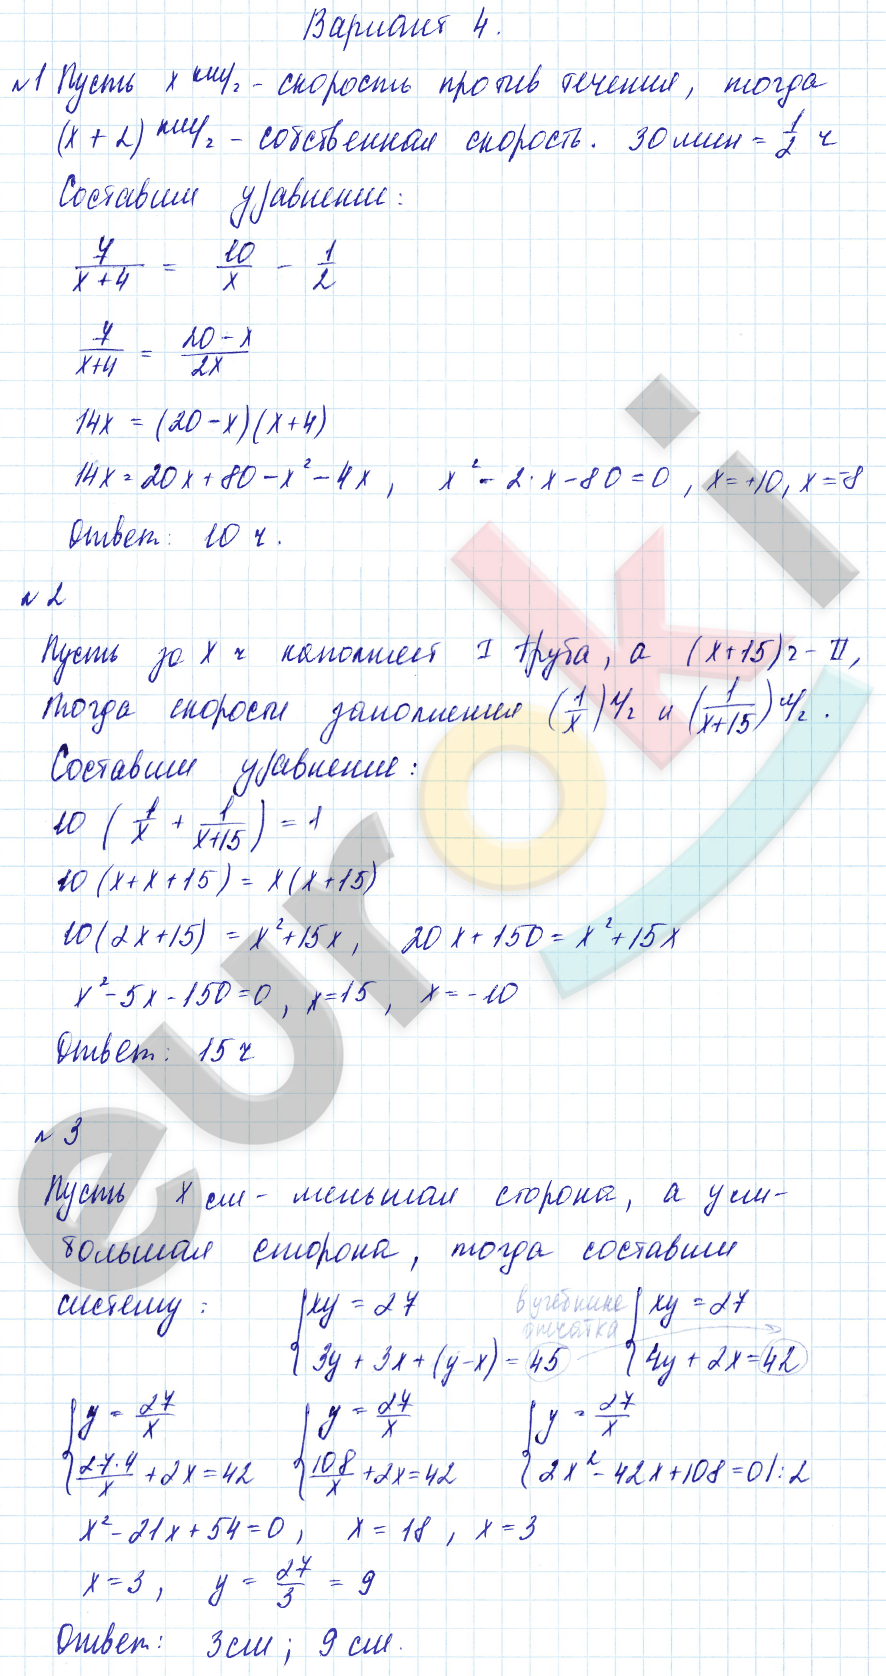 Вариант 4.
№1 Пусть x км/г - скорость против течения, тогда
(x + 2) км/г - собственная скорость. 30 мин = 1/2 ч
Составим уравнение:
7/(x+4) = 10/x - 1/2
7/(x+4) = (20-x)/2x
14x = (20-x)(x+4)
14x = 20x + 80 - x² - 4x, x² - 2·x - 80 = 0, x = +10, x = -8
Ответ: 10 ч.
№2
Пусть за x ч наполнит I труба, а (x+15) г - II,
тогда скорости заполнения (1/x) ч/г и (1/(x+15)) ч/г.
Составим уравнение:
10 (1/x + 1/(x+15)) = 1
10 (x+x+15) = x(x+15)
10(2x+15) = x²+15x, 20x+150 = x²+15x
x²-5x-150=0, x=15, x=-10
Ответ: 15 ч
№3
Пусть x см - меньшая сторона, а y см -
большая сторона, тогда составим
систему: { xy = 27 3y + 3x + (y-x) = 45 в учебнике опечатка { xy = 27 4y + 2x = 42
{ y = 27/x 27·4/x + 2x = 42 { y = 27/x 108/x + 2x = 42 { y = 27/x 2x² - 42x + 108 = 0 |:2
x² - 21x + 54 = 0, x = 18, x = 3
x = 3, y = 27/3 = 9
Ответ: 3 см; 9 см.
euroki